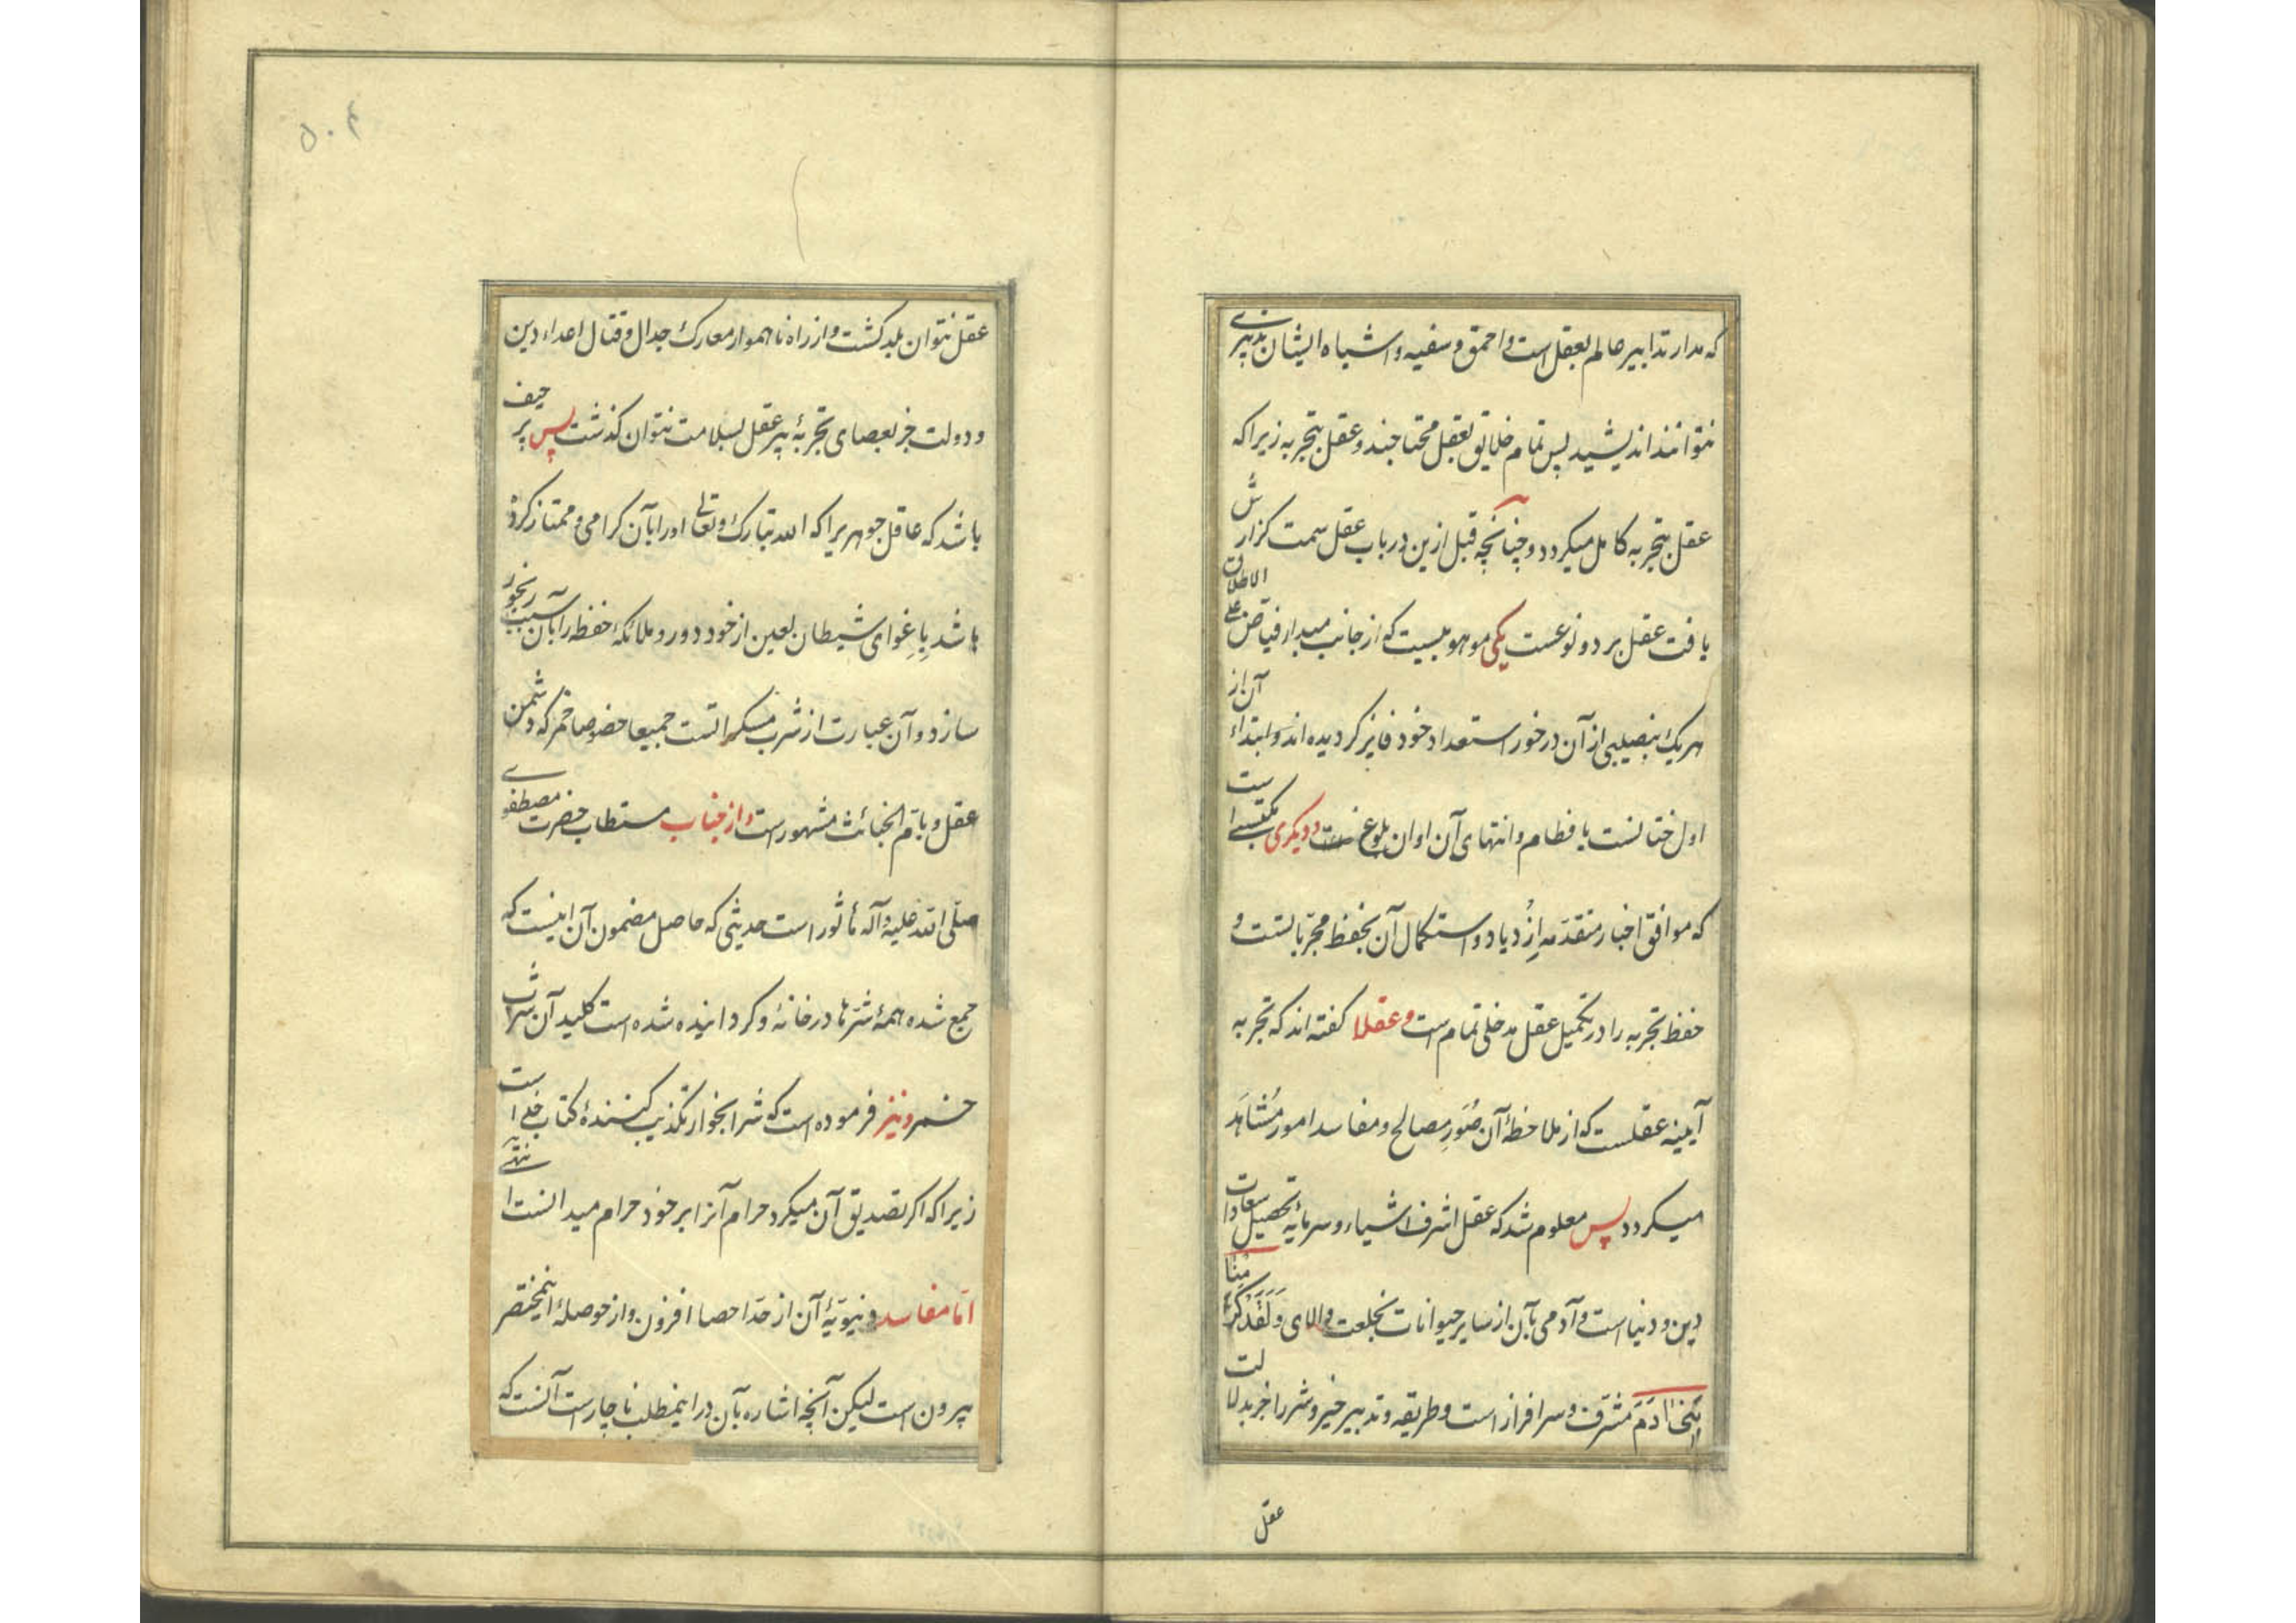 که مدار تدابیر عالم بعقل است و احمق و سفیه و اشباه ایشان تدبیری
نتوانند اندیشید پس تمام خلایق بعقل محتاجند و عقل بتجربه زیرا که
عقل بتجربه کامل میکردد و چنانچه قبل ازین در باب عقل سمت کزارش
یافت عقل بر دو نوعست یکی موهوبیست که از جانب مبدا، فیاض علی الاطلاق
هر یک بنصیبی از آن در خور استعداد خود فایز کردیده اند و ابتداء آن از
اول ختانست یا فطام و انتهای آن اوان بلوغ و دیکری مکتسبی است
که موافق اخبار متقدمه اِزْدیاد و استکمال آن بحفظ مجرّباتست و
حفظ تجربه را در تکمیل عقل مدخلی تمام است و عقلا کفته اند که تجربه
آیینه عقلست که از ملاحظهٔ آن صُوَرِ مصالح و مفاسد امور مُشاهَد
میکردد پس معلوم شد که عقل اشرف اشیاء و سرمایهٔ تحصیل سعادات
دین و دنیاست و آدمی بآن از سایر حیوانات بخلعت والای وَلَقَدْ کَرَّمْنا
بَنی اٰدَمَ مشرّف و سرافراز است و طریقه و تدبیر خیر و شر را جز بدلالت
عقل
۵۰۴
عقل نتوان بلد کشت و از راه ناهموار معارک جدال و قتال اعداء دین
و دولت جز بعصای تجربهٔ پیر عقل بسلامت نتوان کذشت پس پر حیف
باشد که عاقل جوهریرا که الله تبارک و تعالی او را بآن کرامی و ممتاز کرده
باشد بِاِغوای شیطان لعین از خود دور و ملائکهٔ حفظه را بآن سبب رنجور
سازد و آن عبارت از شرب مسکراتست جمیعا خصوصا خمر که دشمن
عقل و بامّ الخبائث مشهور است و از جناب مستطاب حضرت مصطفوی
صلّی الله علیه و آله مأثور است حدیثی که حاصل مضمون آن اینست که
جمع شده همهٔ شرّها در خانهٔ و کردانیده شده است کلید آن شرب
خمر و نیز فرموده است که شرابخوار تکذیب کنندهٔ کتاب خداست
زیرا که اکر تصدیق آن میکرد حرام آنرا بر خود حرام میدانست انتهی
امّا مفاسد دنیویّهٔ آن از حدّ احصا افزون و از حوصلهٔ این مختصر
بیرون است لیکن آنچه اشاره بآن در اینمطلب ناچار است آنست که